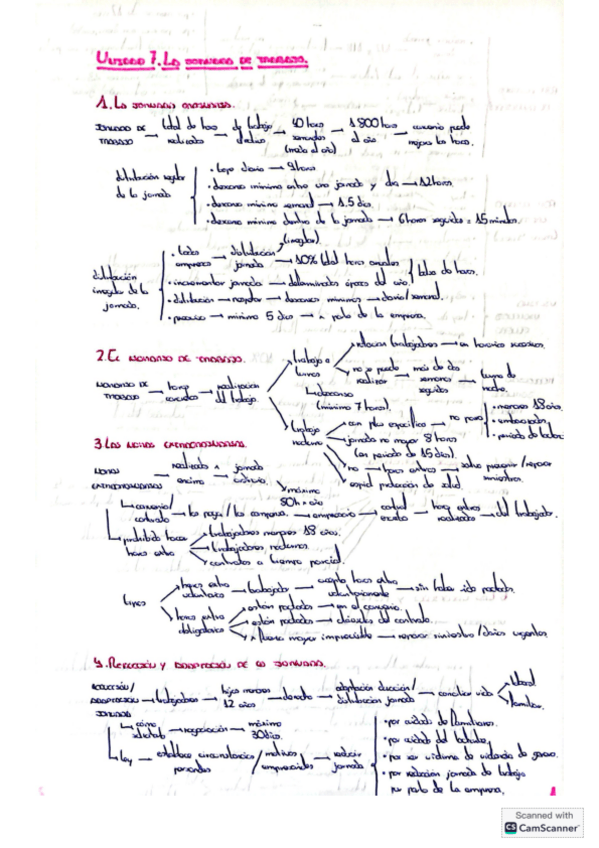 UNIDAD 7. LA JORNADA DE TRABAJO.
1. LA JORNADA ORDINARIA.
JORNADA DE TRABAJO → total de horas realizado → de trabajo efectivo → 40 horas semanales (media al año) → 1800 horas al año → convenio puede mejorar las horas.
distribución regular de la jornada
· tope diario → 9 horas
· descanso mínimo entre una jornada y otra → 12 horas.
· descanso mínimo semanal → 1.5 días.
· descanso mínimo dentro de la jornada → 6 horas seguidas = 15 minutos.
distribución irregular de la jornada.
· todas empresas → distribución jornada (irregular) → 10% total horas anuales
· incrementar jornada → determinadas épocas del año.
· distribución → respetar → descansos mínimos → diario/semanal.
· preaviso → mínimo 5 días → a parte de la empresa.
2. EL HORARIO DE TRABAJO.
HORARIO DE TRABAJO → horas → realización del trabajo.
trabajo a turnos
rotación trabajadores → en horarios sucesivos.
no se puede realizar → más de dos semanas seguidas → turno de noche.
descanso (mínimo 7 horas).
trabajo nocturno
con plus específico → no para
· menores 18 años.
· embarazadas.
· periodo de lactar.
jornada no mayor 8 horas (en periodo de 15 días).
no → horas extras → salvo prevenir/reparar siniestros.
especial protección de salud.
3. LAS HORAS EXTRAORDINARIAS.
HORAS EXTRAORDINARIAS → realizada x encima → jornada ordinaria.
máximo 80h x año
convenio/contrato → las paga/las compensa. → empresario → control escrito → horas extras realizadas → del trabajador.
prohibido hacer horas extra
trabajadores menores 18 años.
trabajadores nocturnos.
contratos a tiempo parcial.
tipos
horas extra voluntarias → trabajador → acepta horas extra voluntariamente → sin haber sido pactadas.
horas extra obligatorias
están pactadas → en el convenio.
están pactadas → cláusulas del contrato.
x fuerza mayor imprevisible → reparar siniestros/daños urgentes.
4. REDUCCIÓN Y ADAPTACIÓN DE LA JORNADA.
REDUCCIÓN/ADAPTACIÓN JORNADA → trabajadores → hijos menores 12 años → derecho → adaptación duración/distribución jornada → conciliar vida
laboral
familiar.
cómo solicitarlo → negociación → máximo 30 días.
ley → establece circunstancias personales / motivos empresariales → reducir jornada
· por cuidado de familiares.
· por cuidado del lactante,
· por ser víctima de violencia de género.
· por reducción jornada de trabajo por parte de la empresa.
Scanned with
CS CamScanner